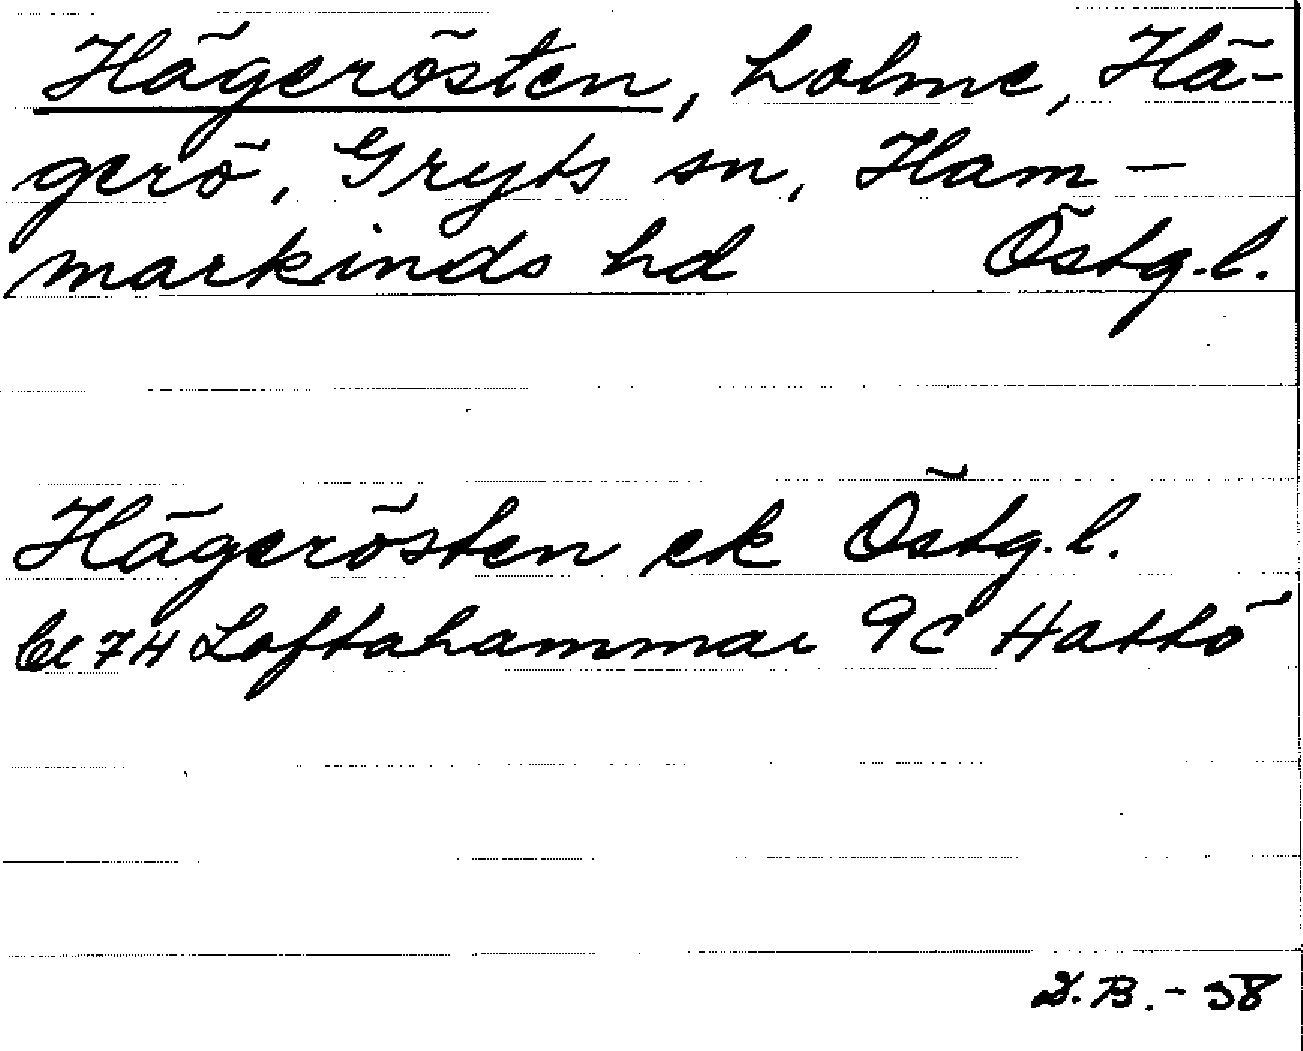 Hägerösten, holme, Hä-
gerö, Gryts sn, Ham-
markinds hd Östg.l.
Hägerösten ek Östg.l.
bl 7H Loftahammar 9C Hattö
D.B.-38